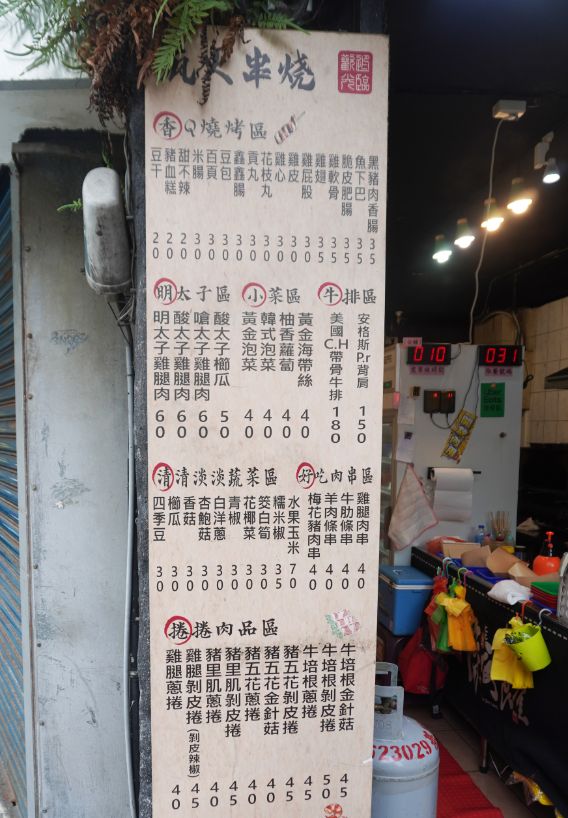 串燒
歡迎光臨
香Q燒烤區
豆干 20
豬血糕 20
甜不辣 20
米腸 30
百頁 30
豆包 30
鑫鑫腸 30
貢丸 30
花枝丸 30
雞心 30
雞皮 30
雞屁股 30
雞翅 35
雞軟骨 35
脆皮肥腸 35
魚下巴 35
黑豬肉香腸 35
明太子區
明太子雞腿肉 60
酸太子雞腿肉 60
嗆太子雞腿肉 60
酸太子櫛瓜 50
小菜區
黃金泡菜 40
韓式泡菜 40
柚香蘿蔔 40
黃金海帶絲 40
牛排區
美國C.H帶骨牛排 180
安格斯P.r背肩 150
清清淡淡蔬菜區
四季豆 30
櫛瓜 30
香菇 30
杏鮑菇 30
白洋蔥 30
青椒 30
花椰菜 30
筊白筍 30
糯米椒 35
水果玉米 70
好吃肉串區
梅花豬肉串 40
羊肉條串 40
牛肋條串 40
雞腿肉串 40
捲捲肉品區
雞腿蔥捲 40
雞腿剝皮捲(剝皮辣椒) 45
豬里肌蔥捲 40
豬里肌剝皮捲 45
豬五花蔥捲 40
豬五花金針菇 40
豬五花剝皮捲 45
牛培根蔥捲 45
牛培根剝皮捲 50
牛培根金針菇 45
010
031
Uber Eats
623029